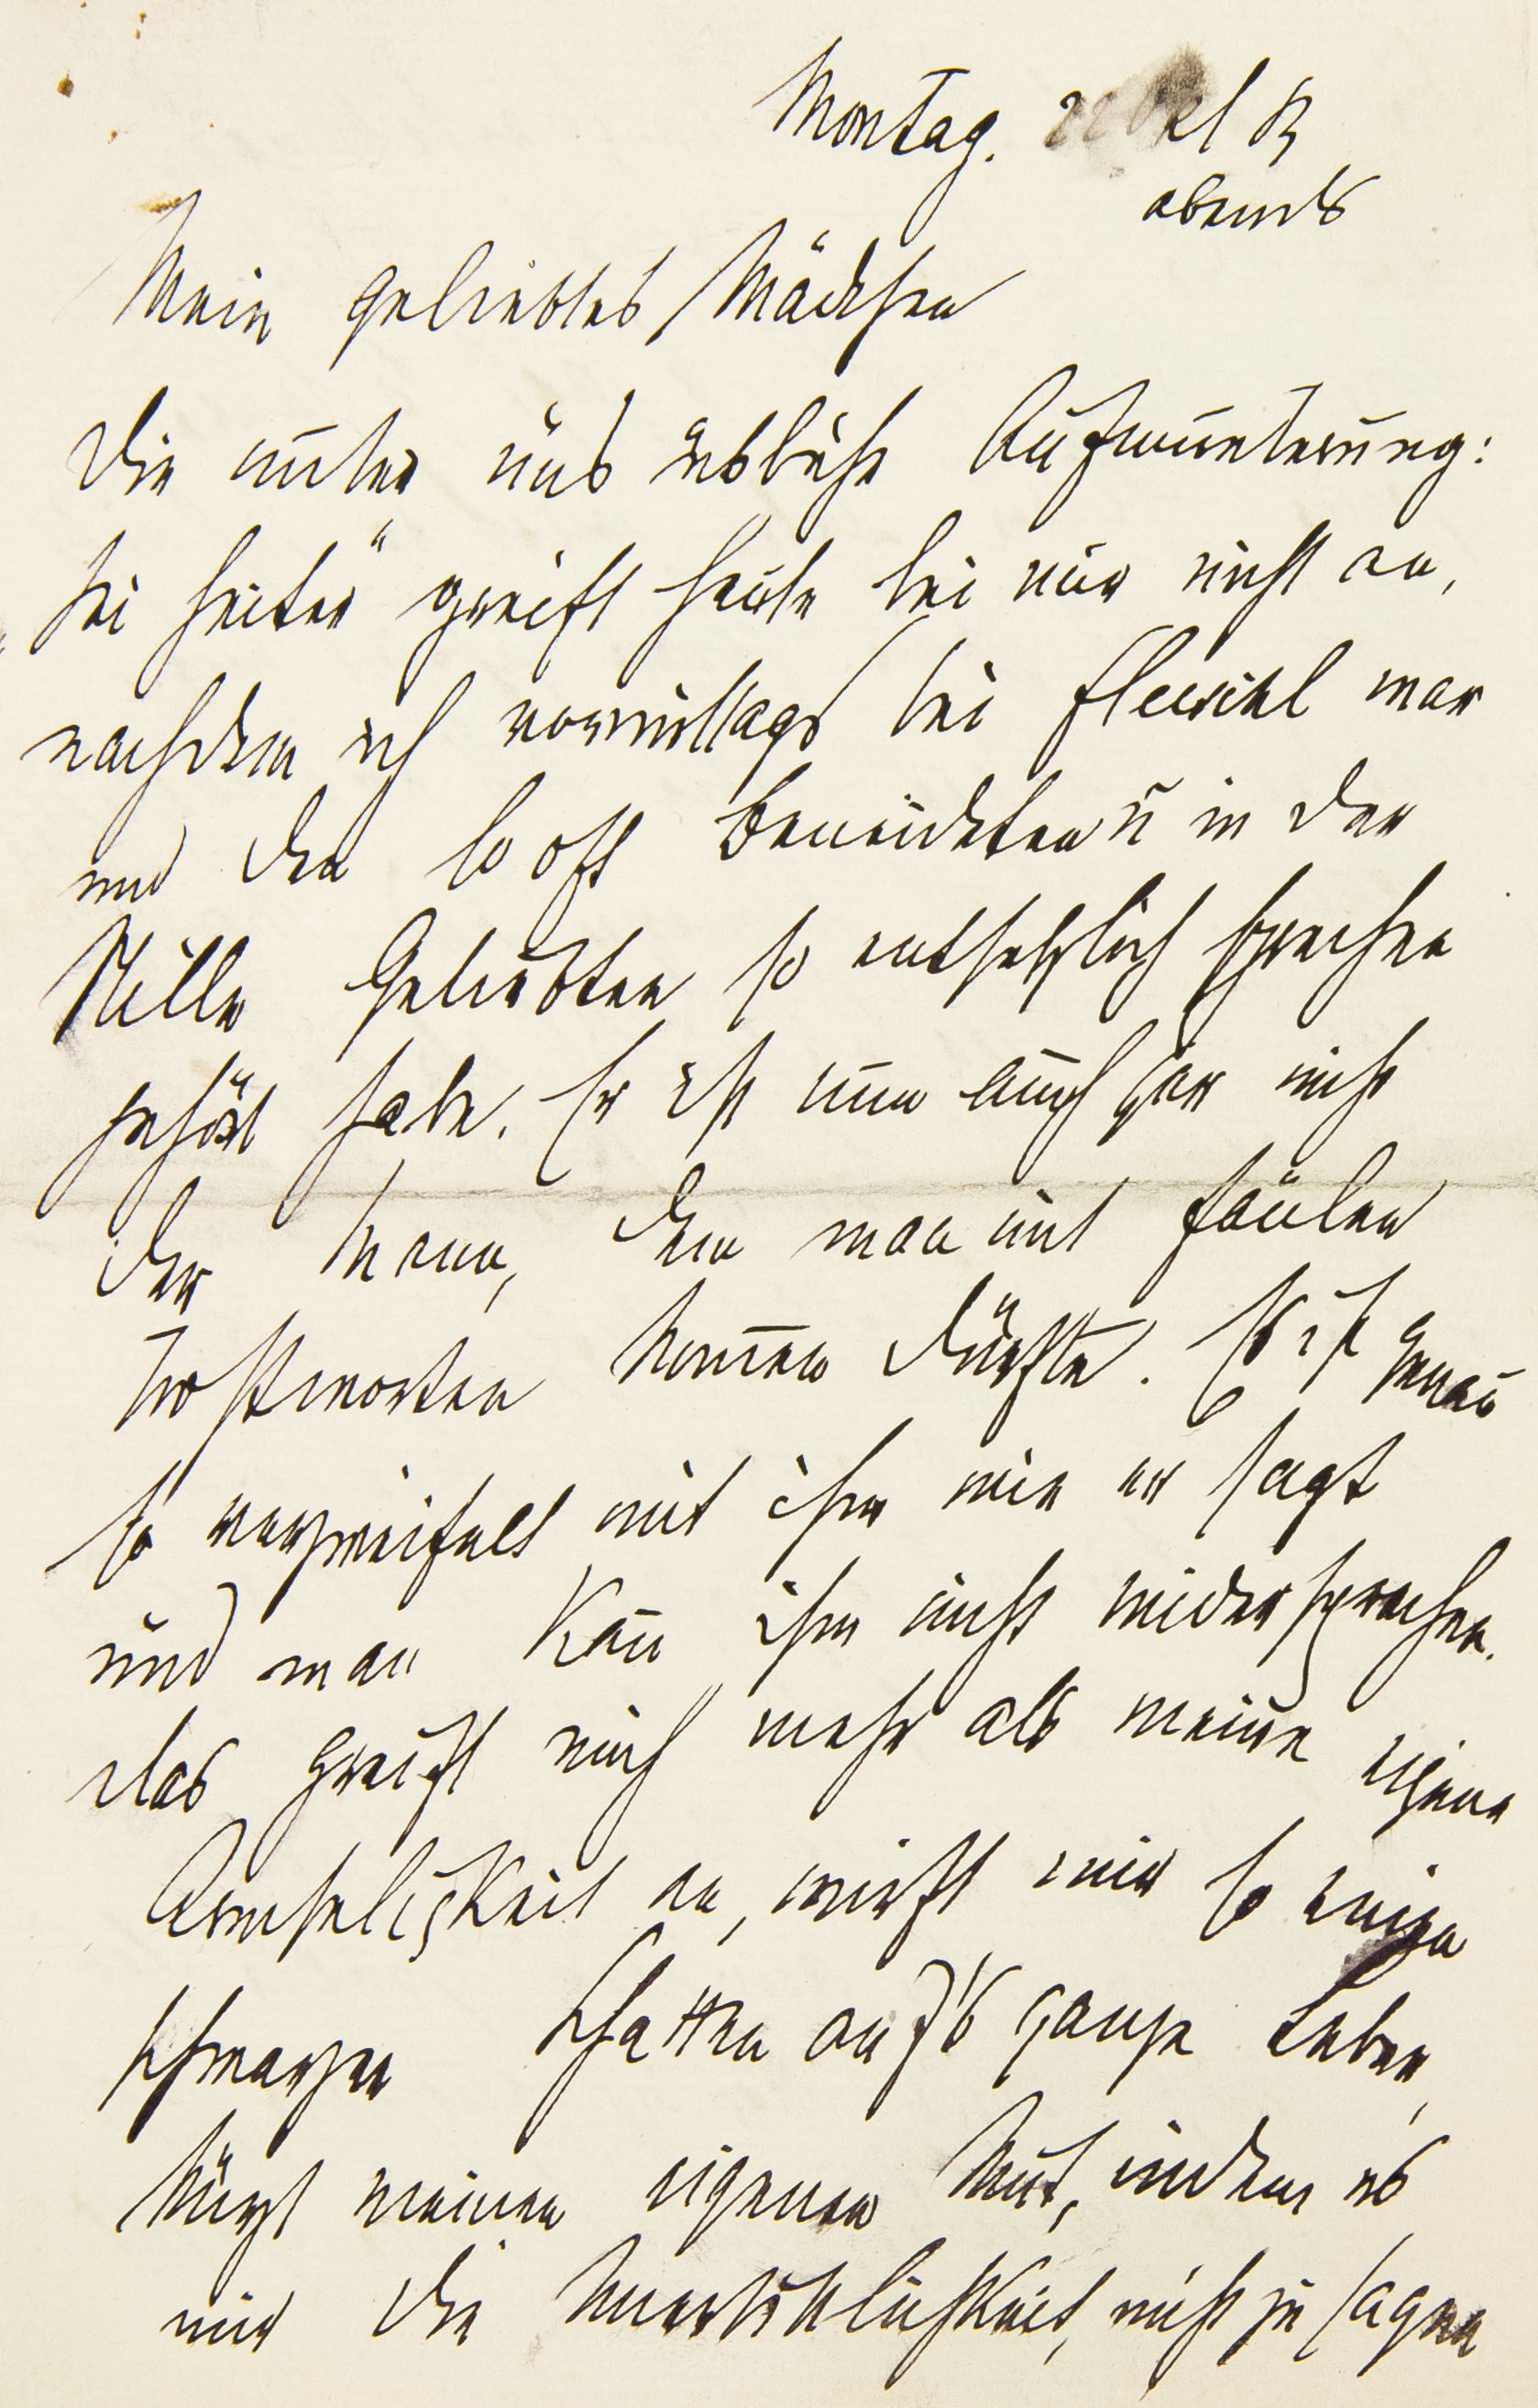 Montag. 22 Okt 83
abends
Mein geliebtes Mädchen
Die unter uns übliche Aufmunterung:
„sei heiter“ greift heute bei mir nicht an,
nachdem ich vormittags bei Fleischl war
und den so oft Beneideten u in der
Stille Geliebten so entsetzlich sprechen
gehört habe. Er ist nun auch gar nicht
der Mann, dem man mit faulen
Trostworten kom̅en dürfte. Es ist genau
so verzweifelt mit ihm wie er sagt
und man kan̅ ihm nicht widersprechen.
Das greift mich mehr als meine eigene
Armseligkeit an, wirft mir so einen
schwarzen Schatten auf's ganze Leben,
kürzt meinen eigenen Mut, indem es
mir die nicht zu sagen